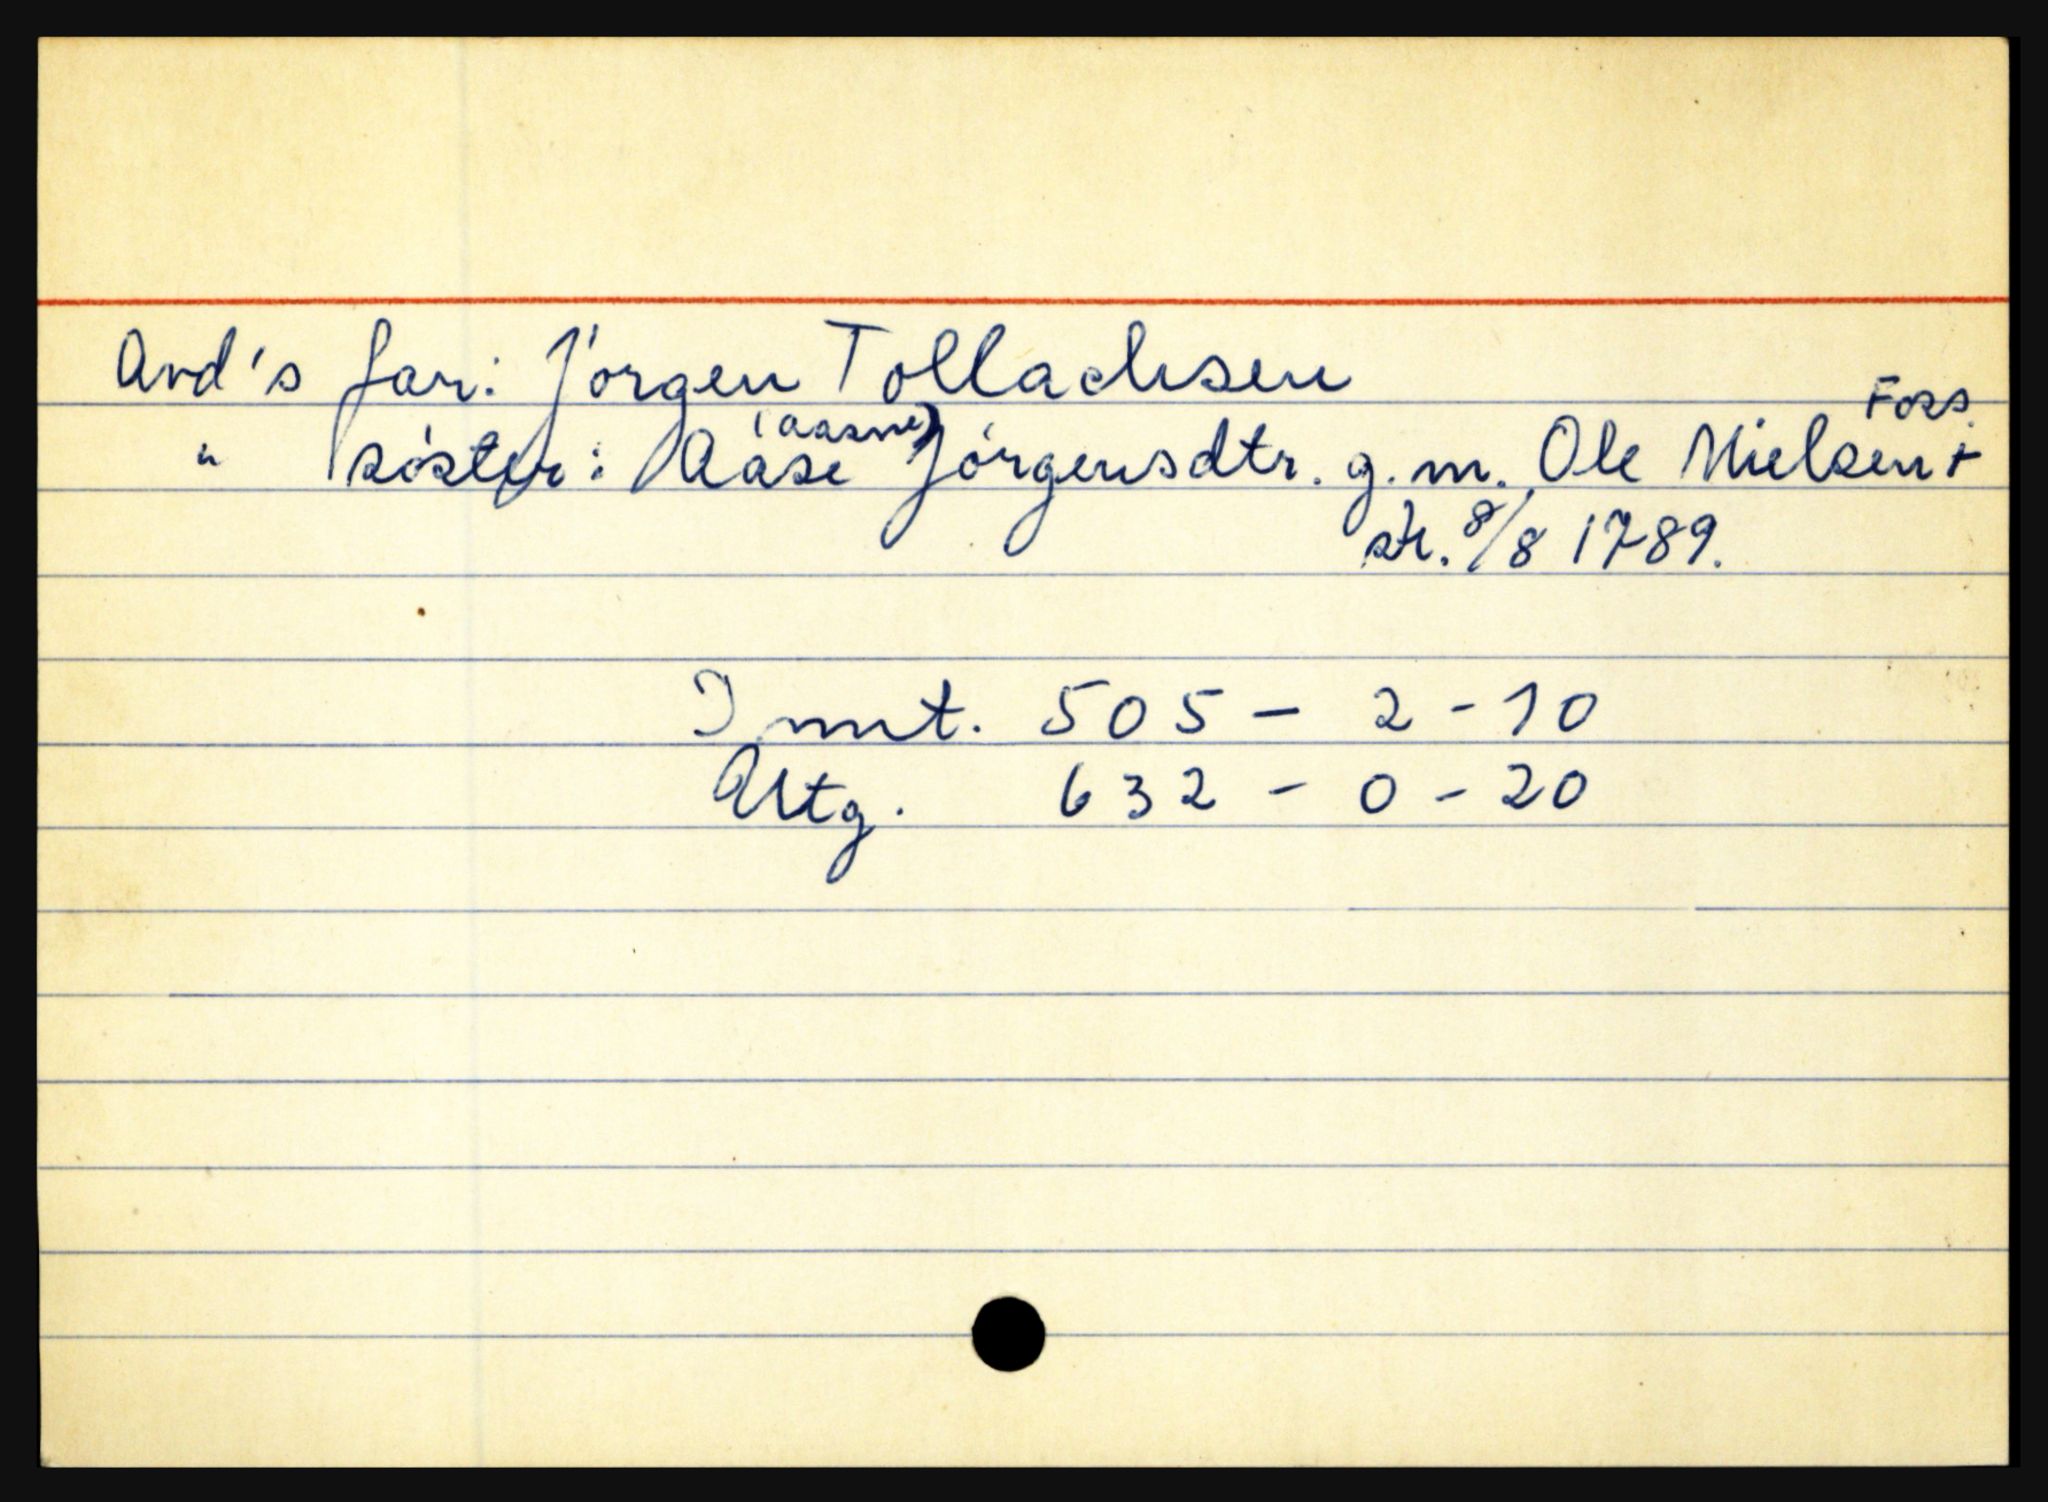 Avd's far: Jórgen Tollachsen
" sóster: Aase (Aasne) Jórgensdtr. g.m. Ole Nielsen Foss +
sk. 8/8 1789.
Innt. 505 - 2 - 10
Utg. 632 - 0 - 20